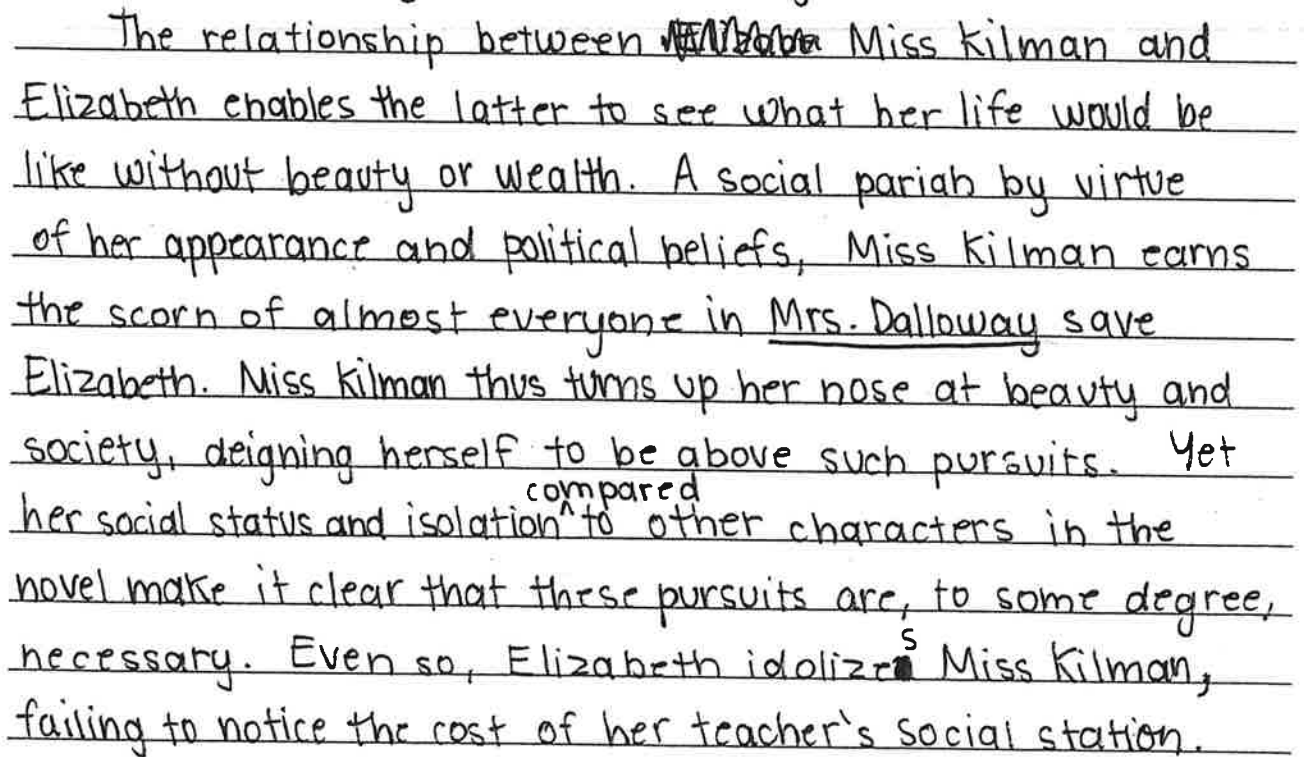 The relationship between Miss Kilman and
Elizabeth enables the latter to see what her life would be
like without beauty or wealth. A social pariah by virtue
of her appearance and political beliefs, Miss Kilman earns
the scorn of almost everyone in Mrs. Dalloway save
Elizabeth. Miss Kilman thus turns up her nose at beauty and
society, deigning herself to be above such pursuits. Yet
her social status and isolation ^compared to other characters in the
novel make it clear that these pursuits are, to some degree,
necessary. Even so, Elizabeth idolizes Miss Kilman,
failing to notice the cost of her teacher's social station.